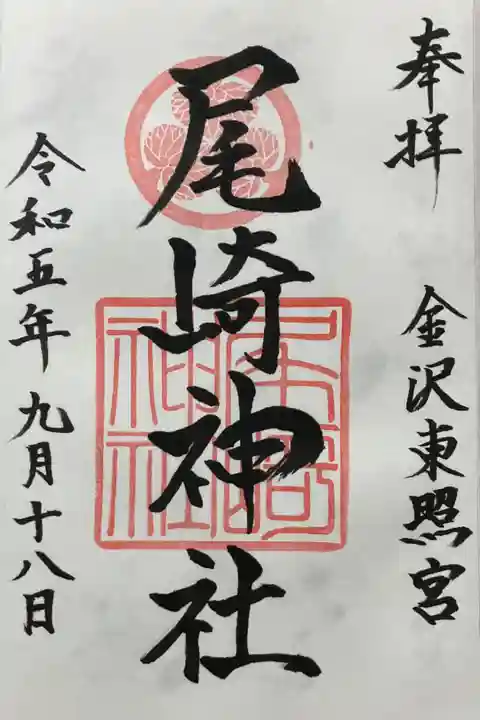 奉拝
金沢東照宮
尾崎神社
令和五年九月十八日
尾崎神社